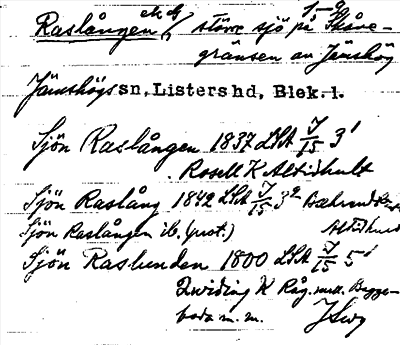 1-9
Raslången ek. kf, större sjö på Skåne-
gränsen av Jämshög
Jämshögs sn, Listers hd, Blek. l.
Sjön Raslången 1837 LSA J/15 3¹
Rosell K Altidhult
Sjön Raslång 1842 LSA J/15 3²
Sjön Raslången ib. (just.) Altidhult
Sjön Raslunden 1800 LSA J/15 5¹
K Råg. mell. Bagge-
boda m.m.